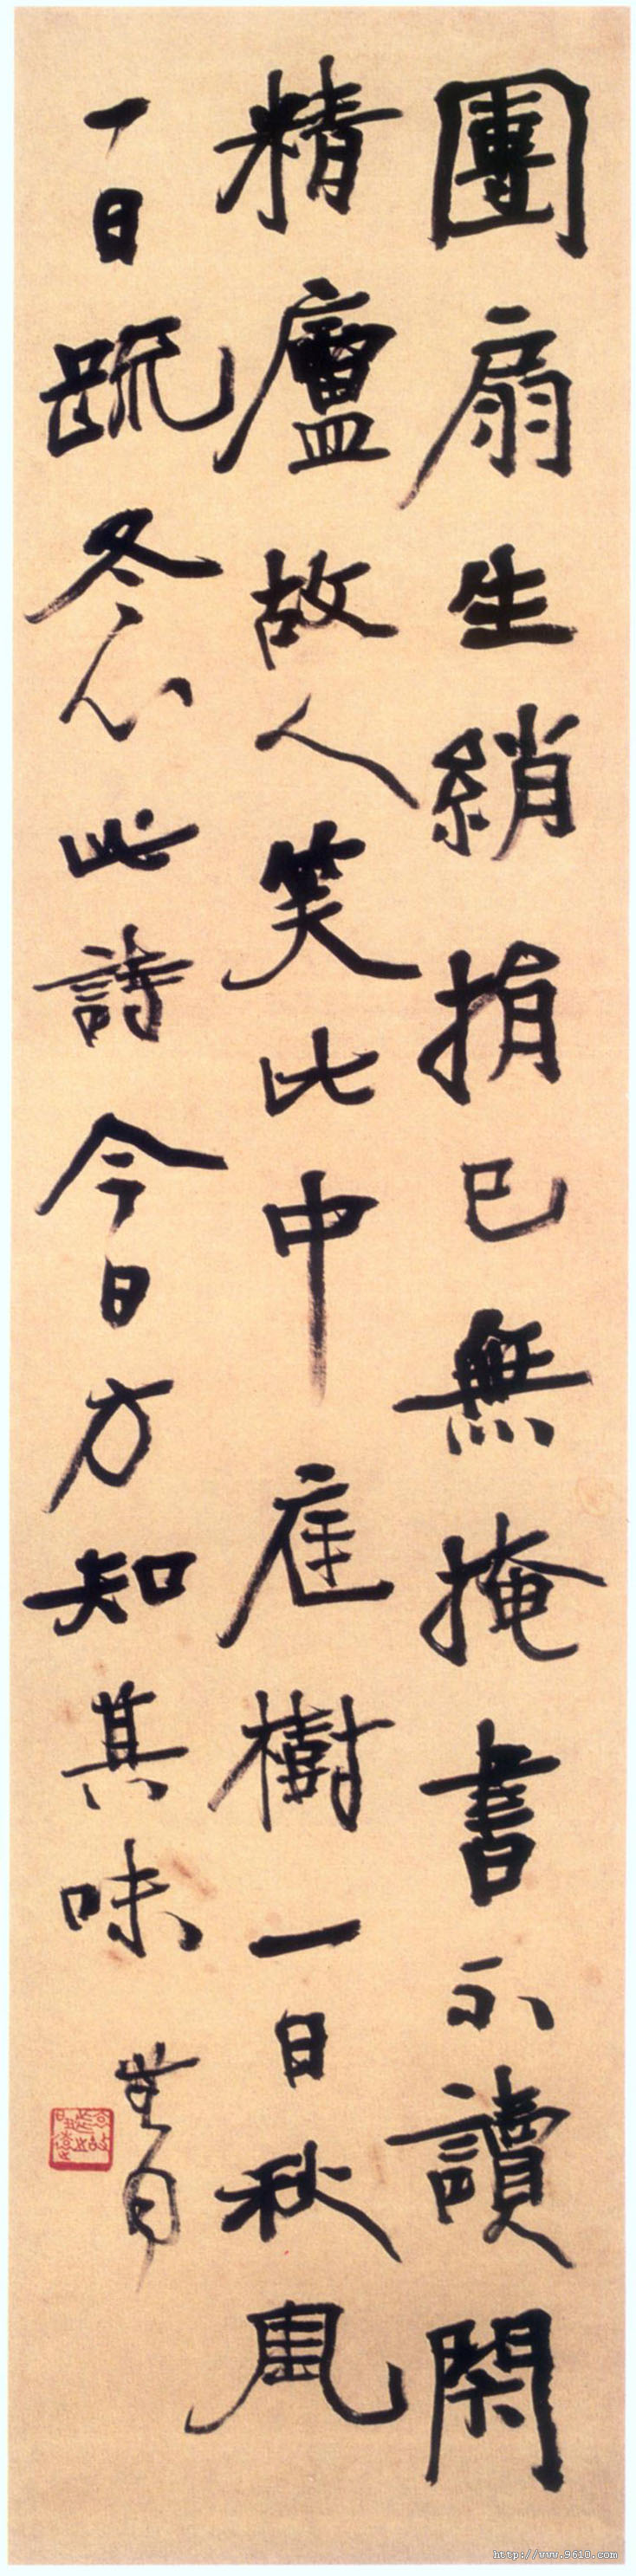 團扇生綃捐已無掩書不讀閉
精廬故人笑比中庭樹一日秋風
一日疏冬心此詩今日方知其味
http://www.9610.com